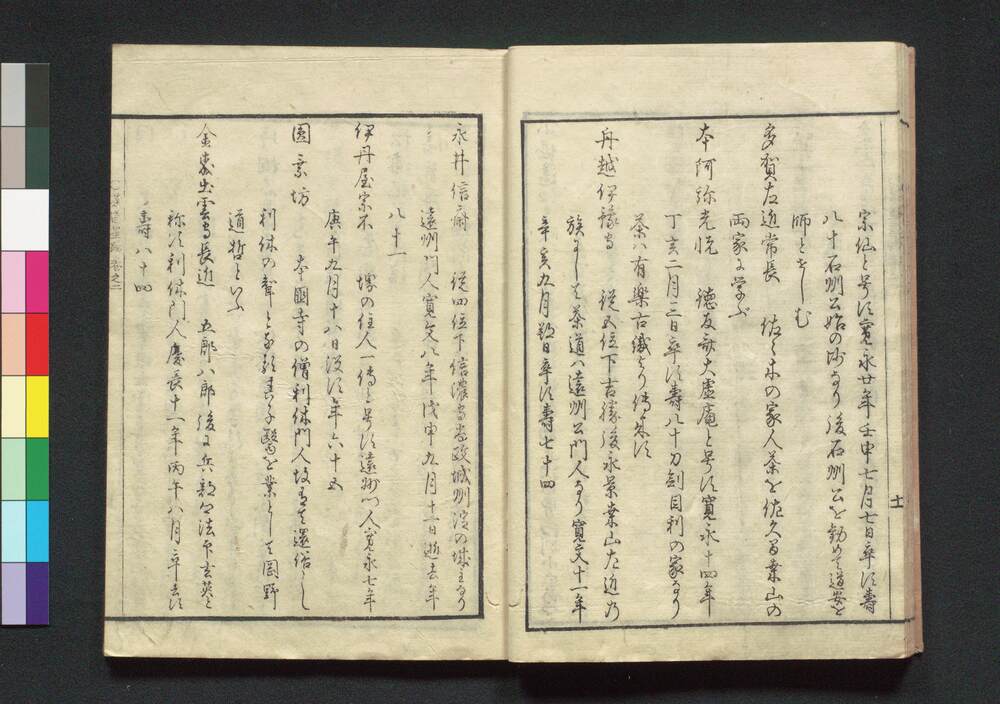 宗仙と号す寛永廿年壬申七月七日卒す壽
八十石州公始の師なり後石州公を勧めて道安を
師とせしむ
多賀左近常長 佐々木の家人茶を佐久間宗山の
両家に学ぶ
本阿弥光悦 徳友斎大虚庵と号す寛永十四年
丁亥二月三日卒す壽八十刀剣目利の家なり
茶ハ有楽古織より傳来す
舟越伊豫守 従五位下吉勝後永景宗山左近の
族にして茶道ハ遠州公門人なり寛文十一年
辛亥九月 日卒す壽七十四
十一
永井信斎 従四位下信濃守尚政城州淀の城主なり
遠州門人寛文八年戊申九月十一日逝去年
八十一
伊丹屋宗不 堺の住人一傳と号す遠州門人寛永七年
庚午九月十八日没す年六十五
圓乗坊 本圀寺の僧利休門人故有て還俗し
利休の聟となり 医を業として岡野
道哲といふ
金森出雲守長近 五郎八郎後に兵部卿法印素英と
称す利休門人慶長十一年丙午八月卒去す
壽八十四